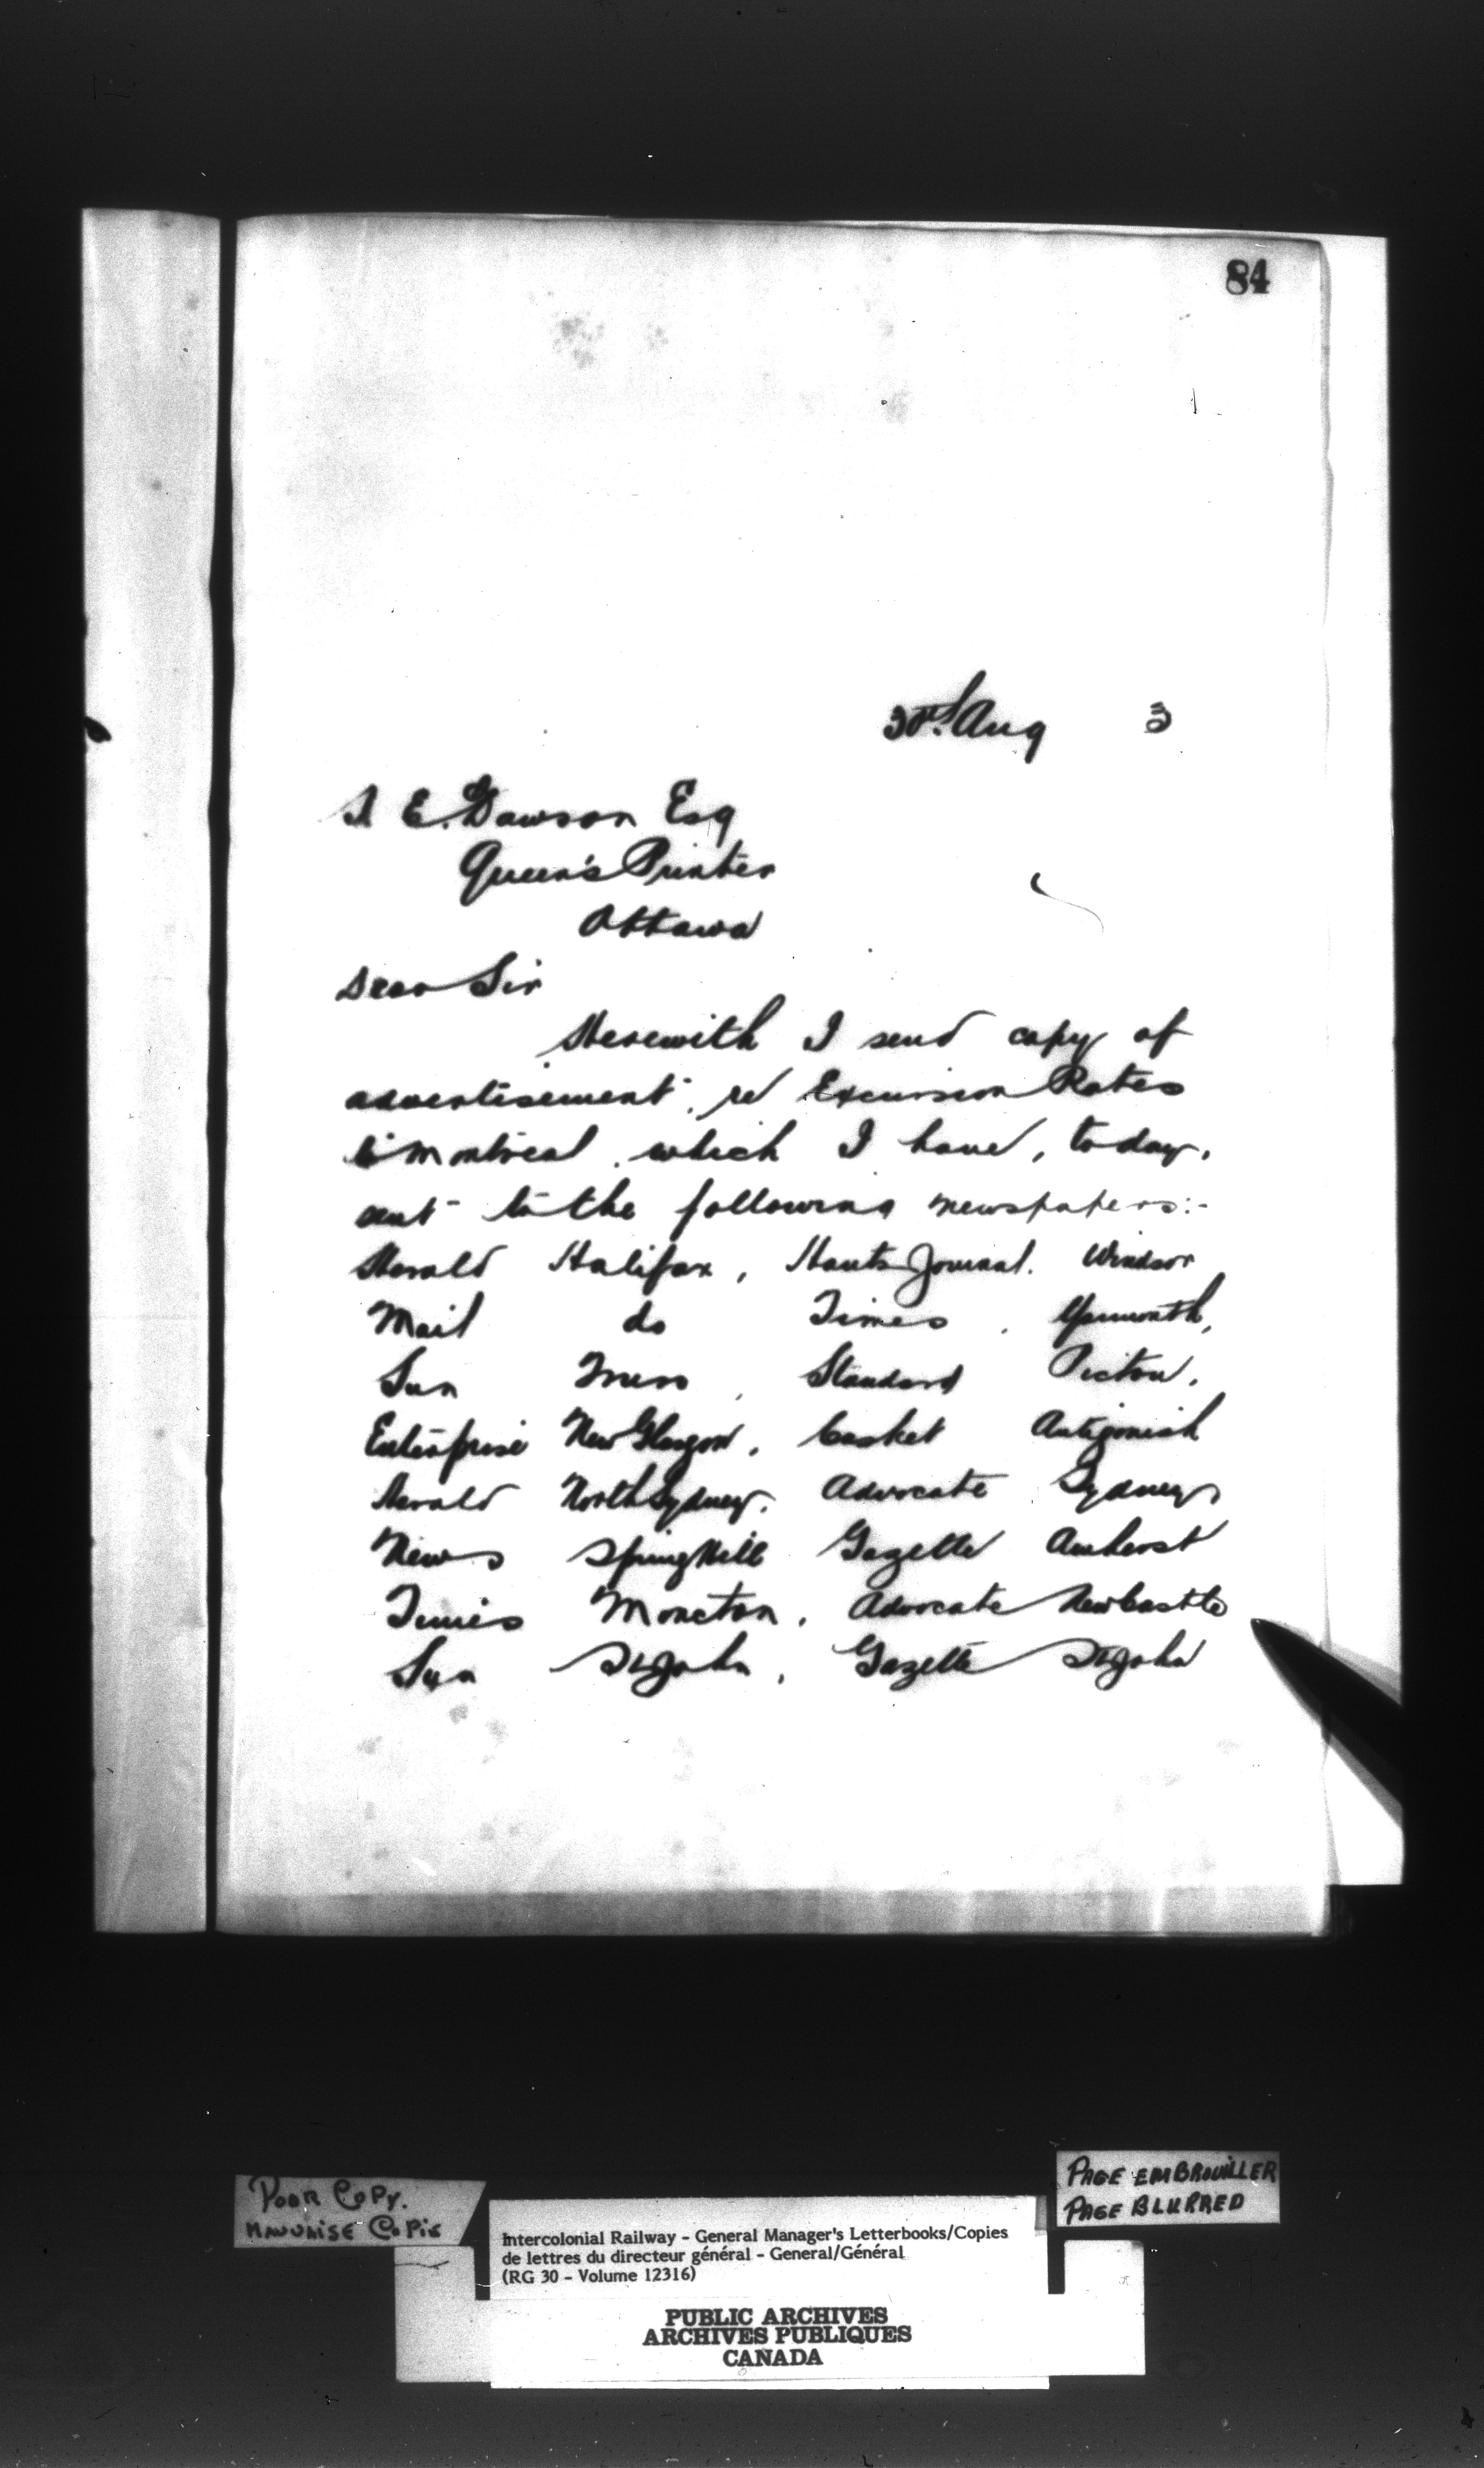 84
30th Aug 3
S E. Dawson Esq
Queen's Printer
Ottawa
Dear Sir
Herewith I send copy of
advertisement, re Excursion Rates
to Montreal, which I have, today,
sent to the following newspapers:-
Herald Halifax, Hants Journal. Windsor
Mail do Times, Yarmouth,
Sun Truro, Standard Pictou,
Enterprise New Glasgow, Casket Antigonish
Herald North Sydney, Advocate Sydney
News Spring Hill Gazette Amherst
Times Moncton, Advocate Newcastle
Sun St John, Gazette St John
POOR COPY.
MAUVAISE COPIE
PAGE EMBROUILLER
PAGE BLURRED
Intercolonial Railway - General Manager's Letterbooks/Copies
de lettres du directeur général - General/Général
(RG 30 - Volume 12316)
PUBLIC ARCHIVES
ARCHIVES PUBLIQUES
CANADA